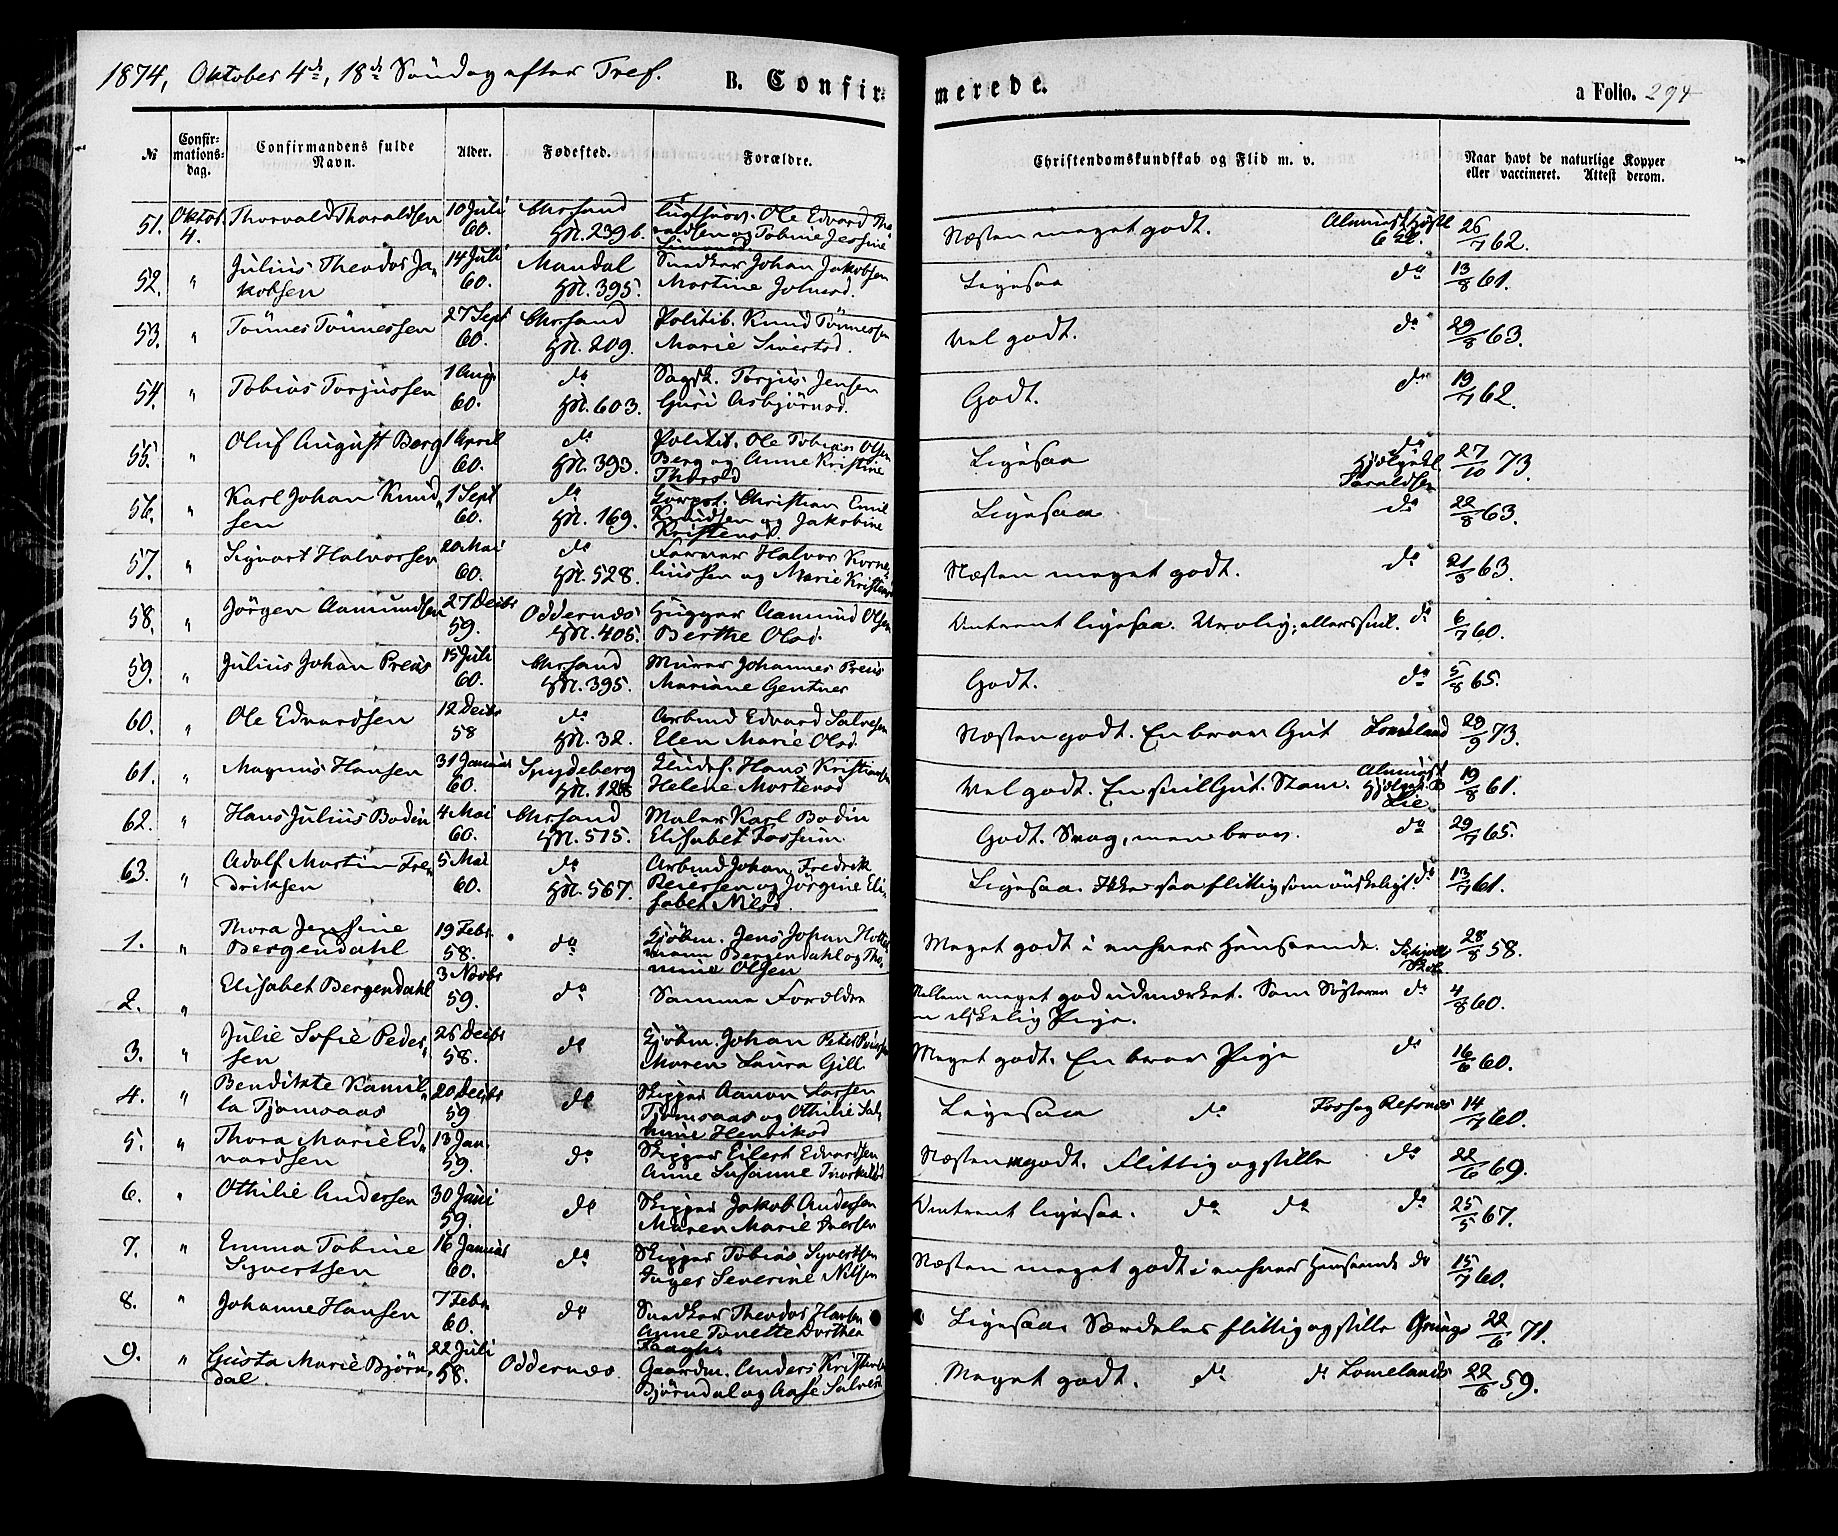 1874, Oktober 4de, 18de Søndag efter Tref.
B. Confirmerede.
a Folio. 294
№ Confirmationsdag. Confirmandens fulde Navn. Alder. Fødested. Forældre. Christendomskundskab og Flid m. v. Naar havt de naturlige Kopper eller vaccineret. Attest derom.
51. Oktob. 4. Thorvald Tharaldsen 10 Juli 60. Chrsand HN. 239 b. Ole Edvard Tharaldsen og Tobine Jessine Næsten meget godt. 26/7 62.
52. " Julius Theodor Jakobsen 14 Juli 60. Mandal HN. 395. Snedker Johan Jakobsen Martine Ligesaa do 13/8 61.
53. " Tönnes Tönnessen 27 Sept 60. Chrsand HN. 209. Politib. Knud Tönnessen Marie Sivertsd. Vel godt. do 29/8 63.
54. " Tobias Torjussen 1 Aug. 60. do HN. 603. Sagsk. Torjus Jensen Guri Asbjörnsd. Godt. do 19/7 62.
55. " Oluf August Berg 1 April 60. do HN. 393. Politib. Ole Tobias Olsen Berg og Anne Kristine Ligesaa do Taraldsen 27/10 73.
56. " Karl Johan Knudsen 1 Sept 60. do HN. 169. Christian Emil Knudsen og Jakobine Kristensd. Ligesaa do 22/8 63.
57. " Sigvart Halvorsen 20 Mai 60. do HN. 528. Farver Halvor Korneliussen og Marie Næsten meget godt. do 21/5 63.
58. " Jörgen Aamundsen 27 Decbr 59. Oddernæs HN. 405. Hugger Aamund Olsen Berthe Olsd. Omtrent ligesaa. Urolig; ellers snil. do 6/7 60.
59. " Julius Johan Preus 15 Juli 60. Chrsand HN. 395. Murer Johannes Preus Mariane Gentner Godt. do 5/8 65.
60. " Ole Edvardsen 12 Decbr 58 do HN. 32. Arbmd Edvard Salvesen Elen Marie Olsd. Næsten godt. En brav Gut Lomeland 29/9 73.
61. " Magnus Hansen 31 Januar 60. Spydeberg HN. 128 Hans Kristiansen Helene Mortensd Vel godt. En snil Gut. Stam. Lie 19/8 61.
62. " Hans Julius Bodin 4 Mai 60. Chrsand HN. 515. Maler Karl Bodin Elisabet Fossum Godt. Svag, men brav. do 29/7 65.
63. " Adolf Martin Fredriksen 5 Mai 60. do HN. 567. Arbmd Johan Fredrik Reiersen og Jörgine Elisabet Nilsd. Ligesaa. Ikke saa flittig som önskeligt do 13/7 61.
1. " Thora Jensine Bergendahl 19 Febr. 58. do Kjöbm. Jens Johan Bergendahl og Olsen Meget godt i enhver Henseende. 28/8 58.
2. " Elisabet Bergendahl 3 Novbr 59. do Samme Forældre Mellem meget godt og udmærket. Som Søsteren en elskelig Pige. do 4/8 60.
3. " Julie Sofie Pedersen 26 Decbr 58. do Kjöbm. Johan Peter Maren Laura Gill Meget godt. En brav Pige do 16/6 60.
4. " Bendikte Kamilla Tjomsaas 20 Decbr 59 do Skipper Aanon Larsen Tjomsaas og Othilie Henriksd Ligesaa do 14/7 60.
5. " Thora Marie Edvardsen 13 Jan. 59. do Skipper Eilert Edvardsen Anne Susanne Thorkildsd Næsten mgodt. Flittig og stille do 22/6 69.
6. " Othilie Andersen 30 Juni 59. do Skipper Jakob Andersen Maren Marie Iversen Omtrent ligesaa. do do do 25/5 67.
7. " Emma Tobine Syvertsen 16 Januar 60. do Skipper Tobias Syvertsen Inger Severine Nilsen Næsten meget godt i enhver Henseende do 15/7 60.
8. " Johanne Hansen 7 Febr. 60. do Snedker Theodor Hansen Anne Tonette Dorthea Ligesaa. Særdeles flittig og stille 22/6 71.
9. " Gusta Marie Björndal 22 Juli 58. Oddernæs. Gaardm. Anders Björndal og Aase Meget godt. do do Lomelands 22/6 59.